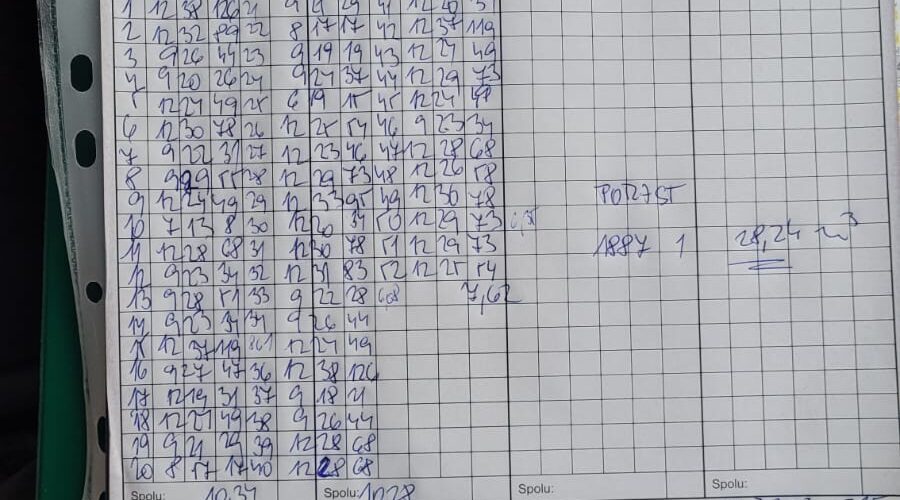 2 12 32 89 22 8 17 17 42 12 37 119
3 9 26 44 23 9 19 19 43 12 24 49
4 9 20 26 24 9 24 37 44 12 29 73
12 24 49 25 6 19 15 45 12 24 49
6 12 30 78 26 12 25 54 46 9 23 34
7 9 22 31 27 12 23 46 47 12 28 68
8 9 29 55 28 12 29 73 48 12 26 58
9 12 24 49 29 12 33 95 49 12 30 78
10 7 13 8 30 12 20 34 50 12 29 73
11 12 28 68 31 12 30 78 51 12 29 73
12 9 23 34 32 12 31 83 52 12 25 54
13 9 28 51 33 9 22 28 7,62
14 9 23 34 34 9 26 44
15 12 37 119 12 24 49
16 9 27 47 36 12 38 126
17 12 19 31 37 9 18 21
18 12 24 49 38 9 26 44
19 9 21 29 39 12 28 68
20 8 17 17 40 12 28 68
Spolu: 10,34 Spolu: 10,28 Spolu: Spolu:
1887 1 28,24 m³